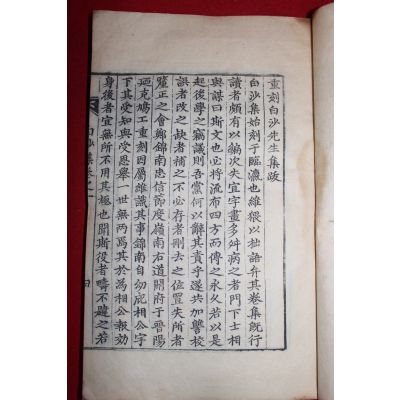 重刻白沙先生集跋
白沙集始刻于臨瀛也維猥以拙語弁其卷集既行
讀者頗有以編次失宜字畫多舛病之者門下士相
與謀曰斯文也必將流布四方而傳之永久若以是
起後學之竊議則吾黨何以辭其責乎遂共加讐校
誤者改之缺者補之不必存者刪去之位置失所者
釐正之會鄭錦南忠信節度嶺南右道開府于晉陽
克鳩工重刻因屬維識其事錦南自幼庇相公宇
下其受知與受恩舉一世無兩焉其於為相公報効
身後者宜無所不用其極也聞斯役者疇不韙之若
白沙集